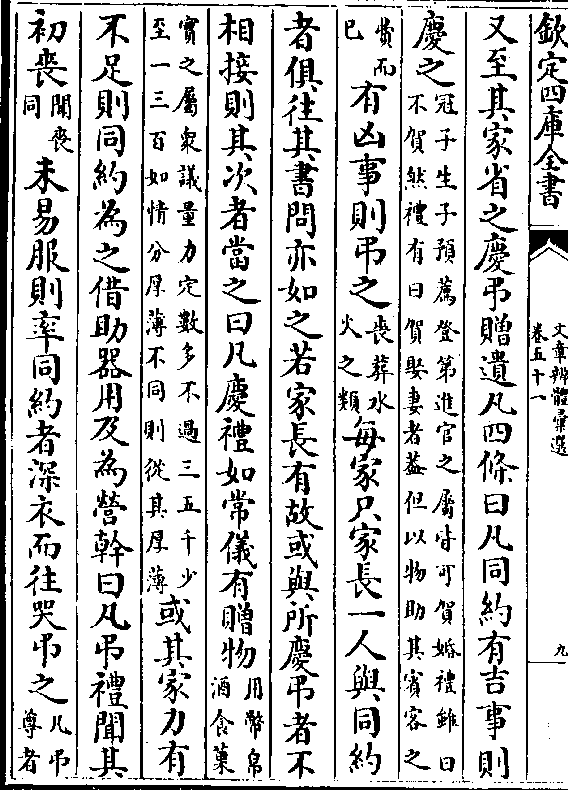 欽定四庫全書
文章辨體彙選
卷五十一
九
又至其家省之慶弔贈遺凡四條曰凡同約有吉事則
慶之冠子生子預薦登第進官之屬皆可賀婚禮雖曰
不賀然禮有曰賀娶妻者葢但以物助其賓客之
費而
已有凶事則弔之喪葬水
火之類每家只家長一人與同約
者俱往其書問亦如之若家長有故或與所慶弔者不
相接則其次者當之曰凡慶禮如常儀有贈物用幣帛
酒食菓
實之屬衆議量力定數多不過三五千少
至一三百如情分厚薄不同則從其厚薄或其家力有
不足則同約為之借助器用及為營幹曰凡弔禮聞其
初喪聞喪
同未易服則率同約者深衣而往哭弔之凡弔
尊者